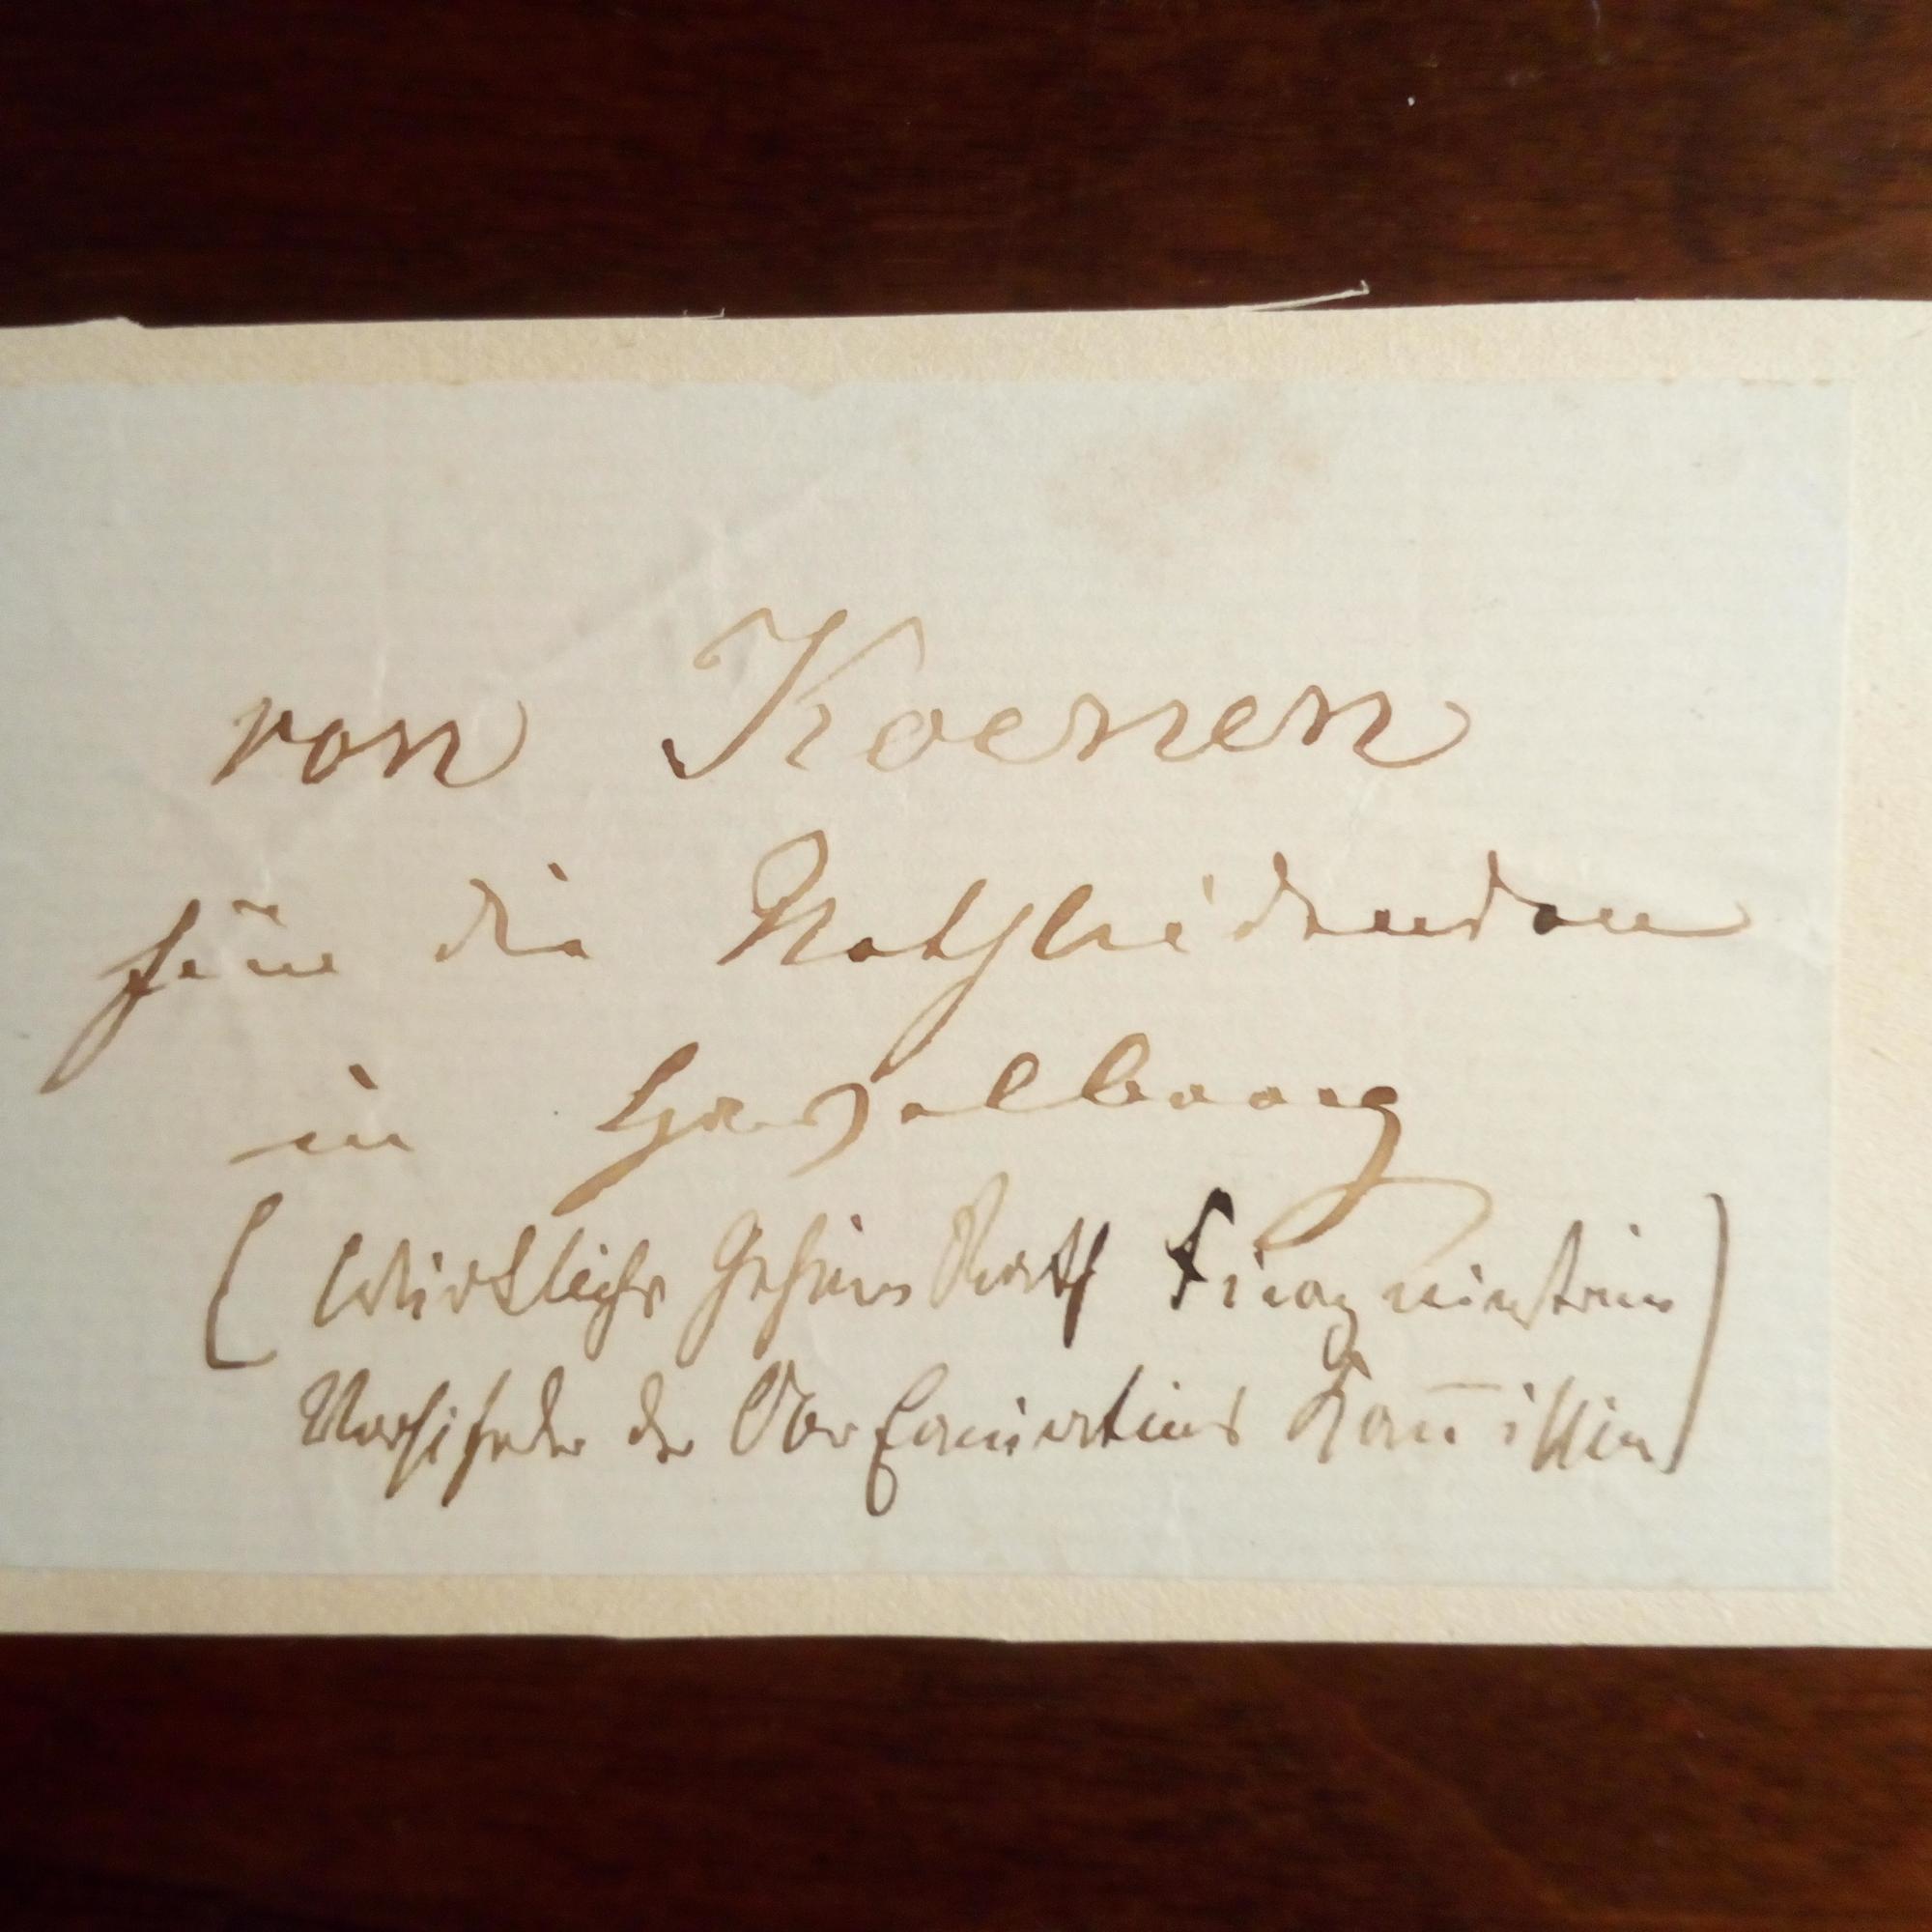 von Koenen
für die Nothleidenden
in Havelberg
(Wirklicher Geheimer Rath Finanzministerium
Vorsitzender der Ober Examinations Kom̄ission)